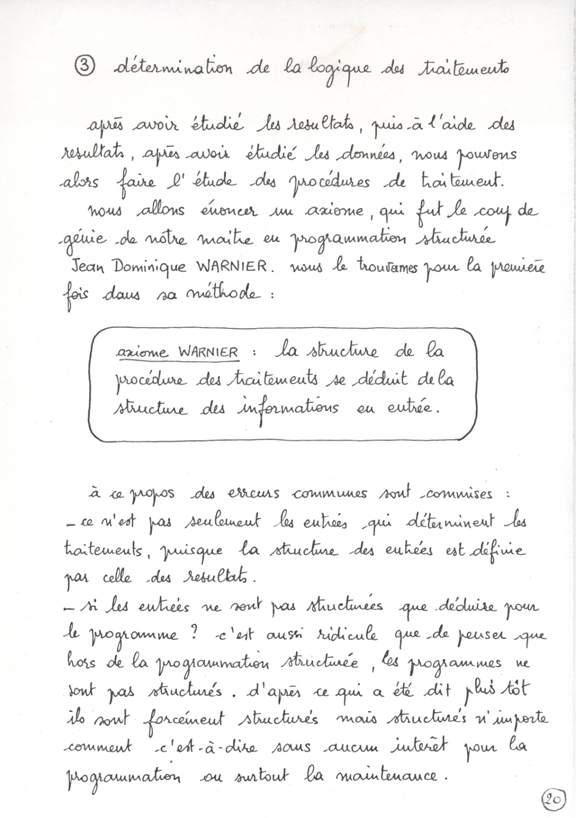 ③ détermination de la logique des traitements
après avoir étudié les resultats, puis à l'aide des
resultats, après avoir étudié les données, nous pouvons
alors faire l'étude des procédures de traitement.
nous allons énoncer un axiome, qui fut le coup de
génie de nôtre maitre en programmation structurée
Jean Dominique WARNIER. nous le trouvames pour la première
fois dans sa méthode :
axiome WARNIER : la structure de la
procédure des traitements se déduit de la
structure des informations en entrée.
à ce propos des erreurs communes sont commises :
– ce n'est pas seulement les entrées qui déterminent les
traitements, puisque la structure des entrées est définie
par celle des resultats.
– si les entrées ne sont pas structurées que déduire pour
le programme ? c'est aussi ridicule que de penser que
hors de la programmation structurée, les programmes ne
sont pas structurés. d'après ce qui a été dit plus tôt
ils sont forcément structurés mais structurés n'importe
comment c'est-à-dire sans aucun interêt pour la
programmation ou surtout la maintenance.
20